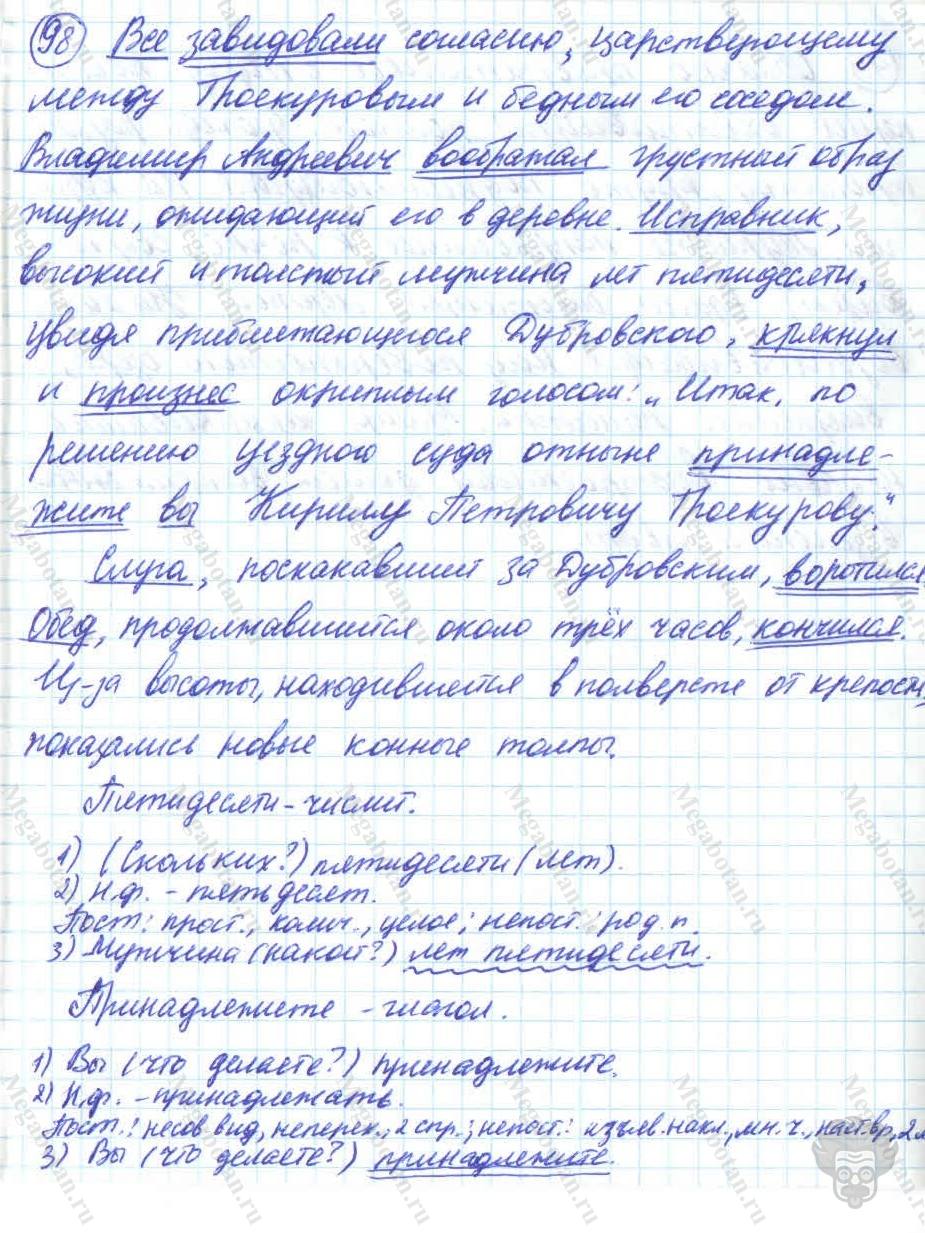 98 Все завидовали согласию, царствующему
между Троекуровым и бедным его соседом.
Владимир Андреевич воображал грустный образ
жизни, ожидающий его в деревне. Исправник,
высокий и толстый мужчина лет пятидесяти,
увидя приближающегося Дубровского, крякнул
и произнёс охриплым голосом: „Итак, по
решению уездного суда отныне принадле-
жите вы Кирилу Петровичу Троекурову."
Слуга, поскакавший за Дубровским, воротился.
Обед, продолжавшийся около трёх часов, кончился.
Из-за высоты, находившейся в полверсте от крепости,
показались новые конные толпы.
Пятидесяти - числит.
1) (Скольких?) пятидесяти (лет).
2) Н.ф. - пятьдесят.
Пост.: прост., колич., целое; непост.: род. п.
3) Мужчина (какой?) лет пятидесяти.
Принадлежите - глагол.
1) Вы (что делаете?) принадлежите.
2) Н.ф. - принадлежать.
Пост.: несов вид, неперех., 2 спр.; непост.: изъяв. накл., мн. ч., наст. вр., 2 л
3) Вы (что делаете?) принадлежите.
Megabotan.ru